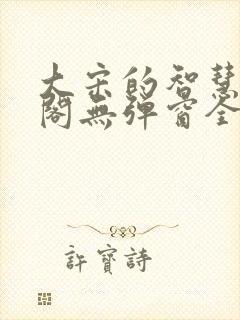 大宋的智慧
閣無彈窗全
許寶詩